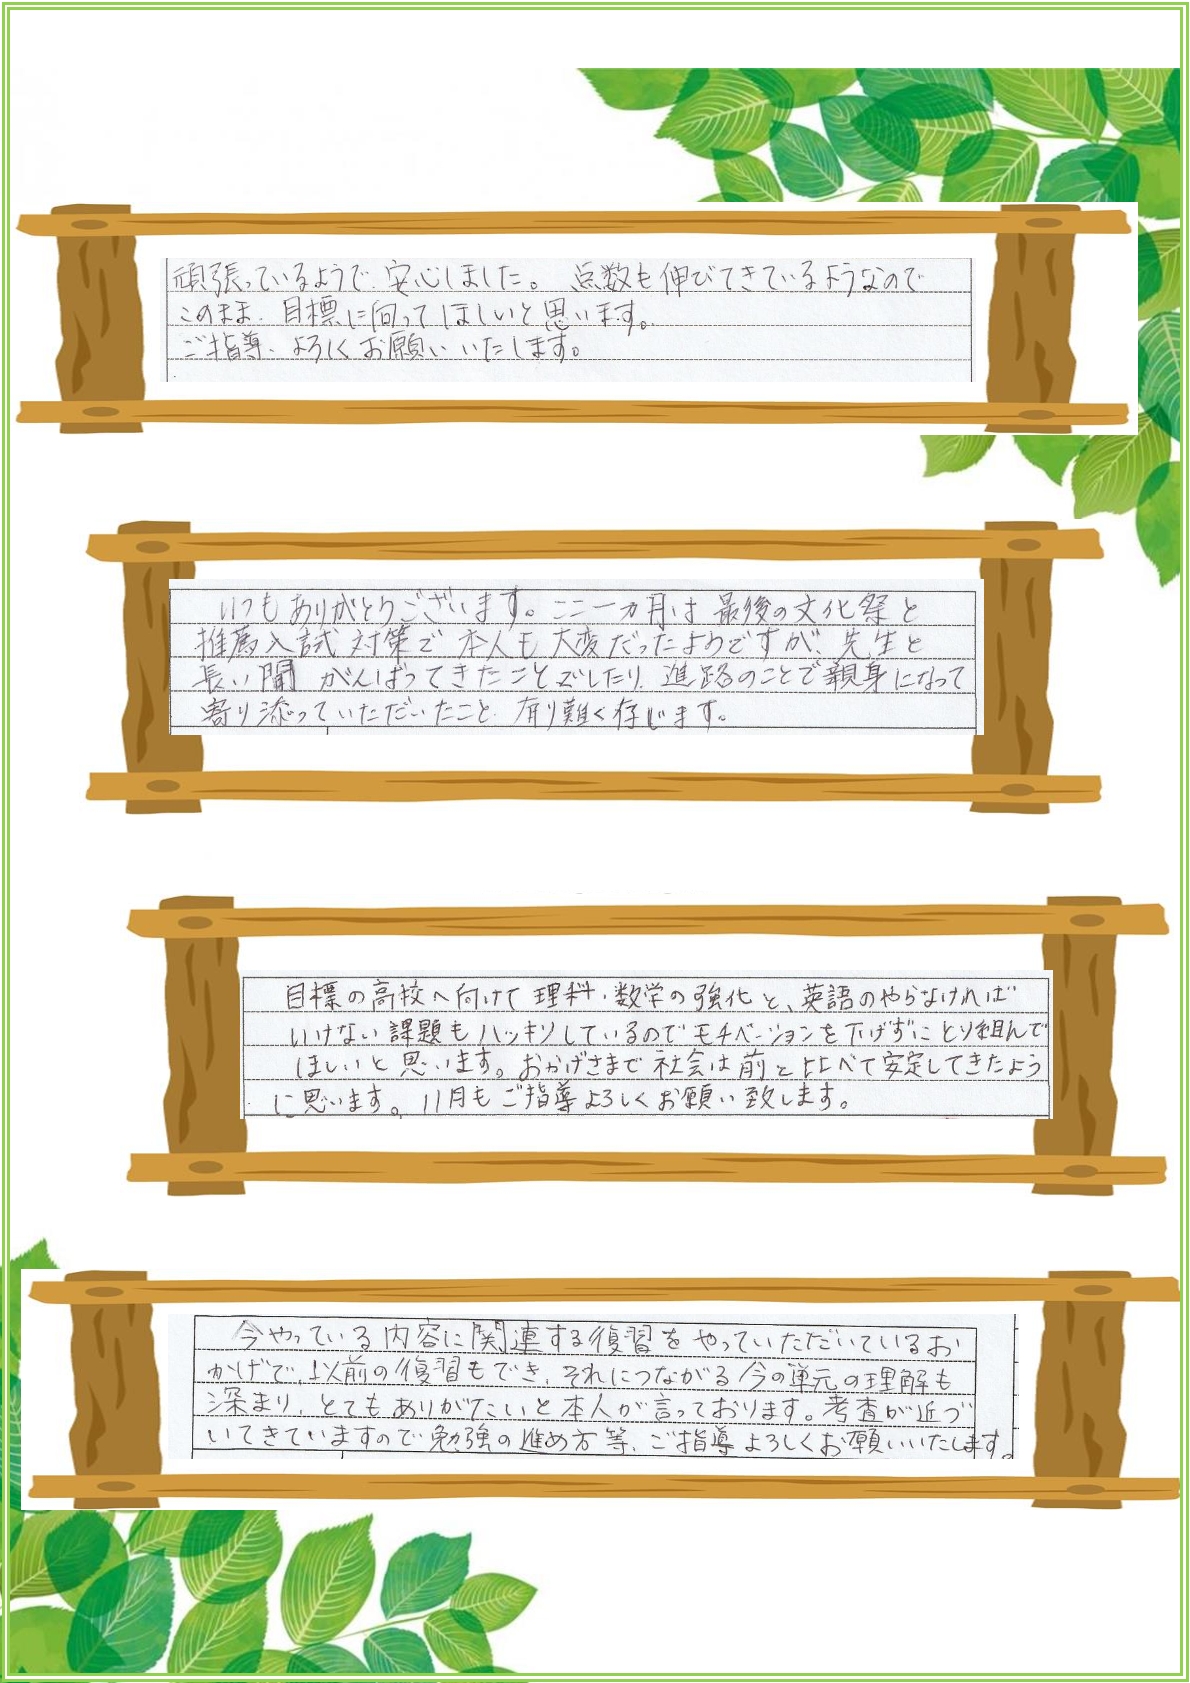 頑張っているようで、安心しました。 点数も伸びてきているようなので
このまま、目標に向ってほしいと思います。
ご指導、よろしくお願いいたします。
いつもありがとうございます。ここ一カ月は最後の文化祭と
推薦入試対策で本人も大変だったようですが、先生と
長い間 がんばってきたことでしたり、進路のことで親身になって
寄り添っていただいたこと、有り難く存じます。
目標の高校へ向けて理科・数学の強化と、英語のやらなければ
いけない課題もハッキリしているのでモチベーションを下げずにとり組んで
ほしいと思います。おかげさまで社会は前と比べて安定してきたよう
に思います。11月もご指導よろしくお願い致します。
今やっている内容に関連する復習をやっていただいているお
かげで、以前の復習もでき、それにつながる今の単元の理解も
深まり、とてもありがたいと本人が言っております。考査が近づ
いてきていますので勉強の進め方等、ご指導よろしくお願いいたします。